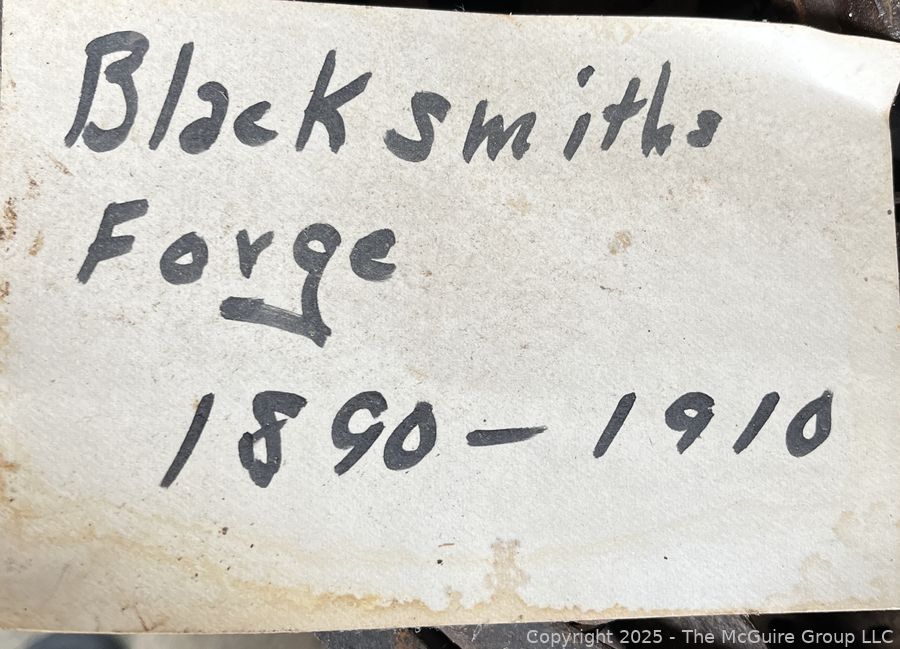 Blacksmiths
Forge
1890 – 1910
Copyright 2025 - The McGuire Group LLC